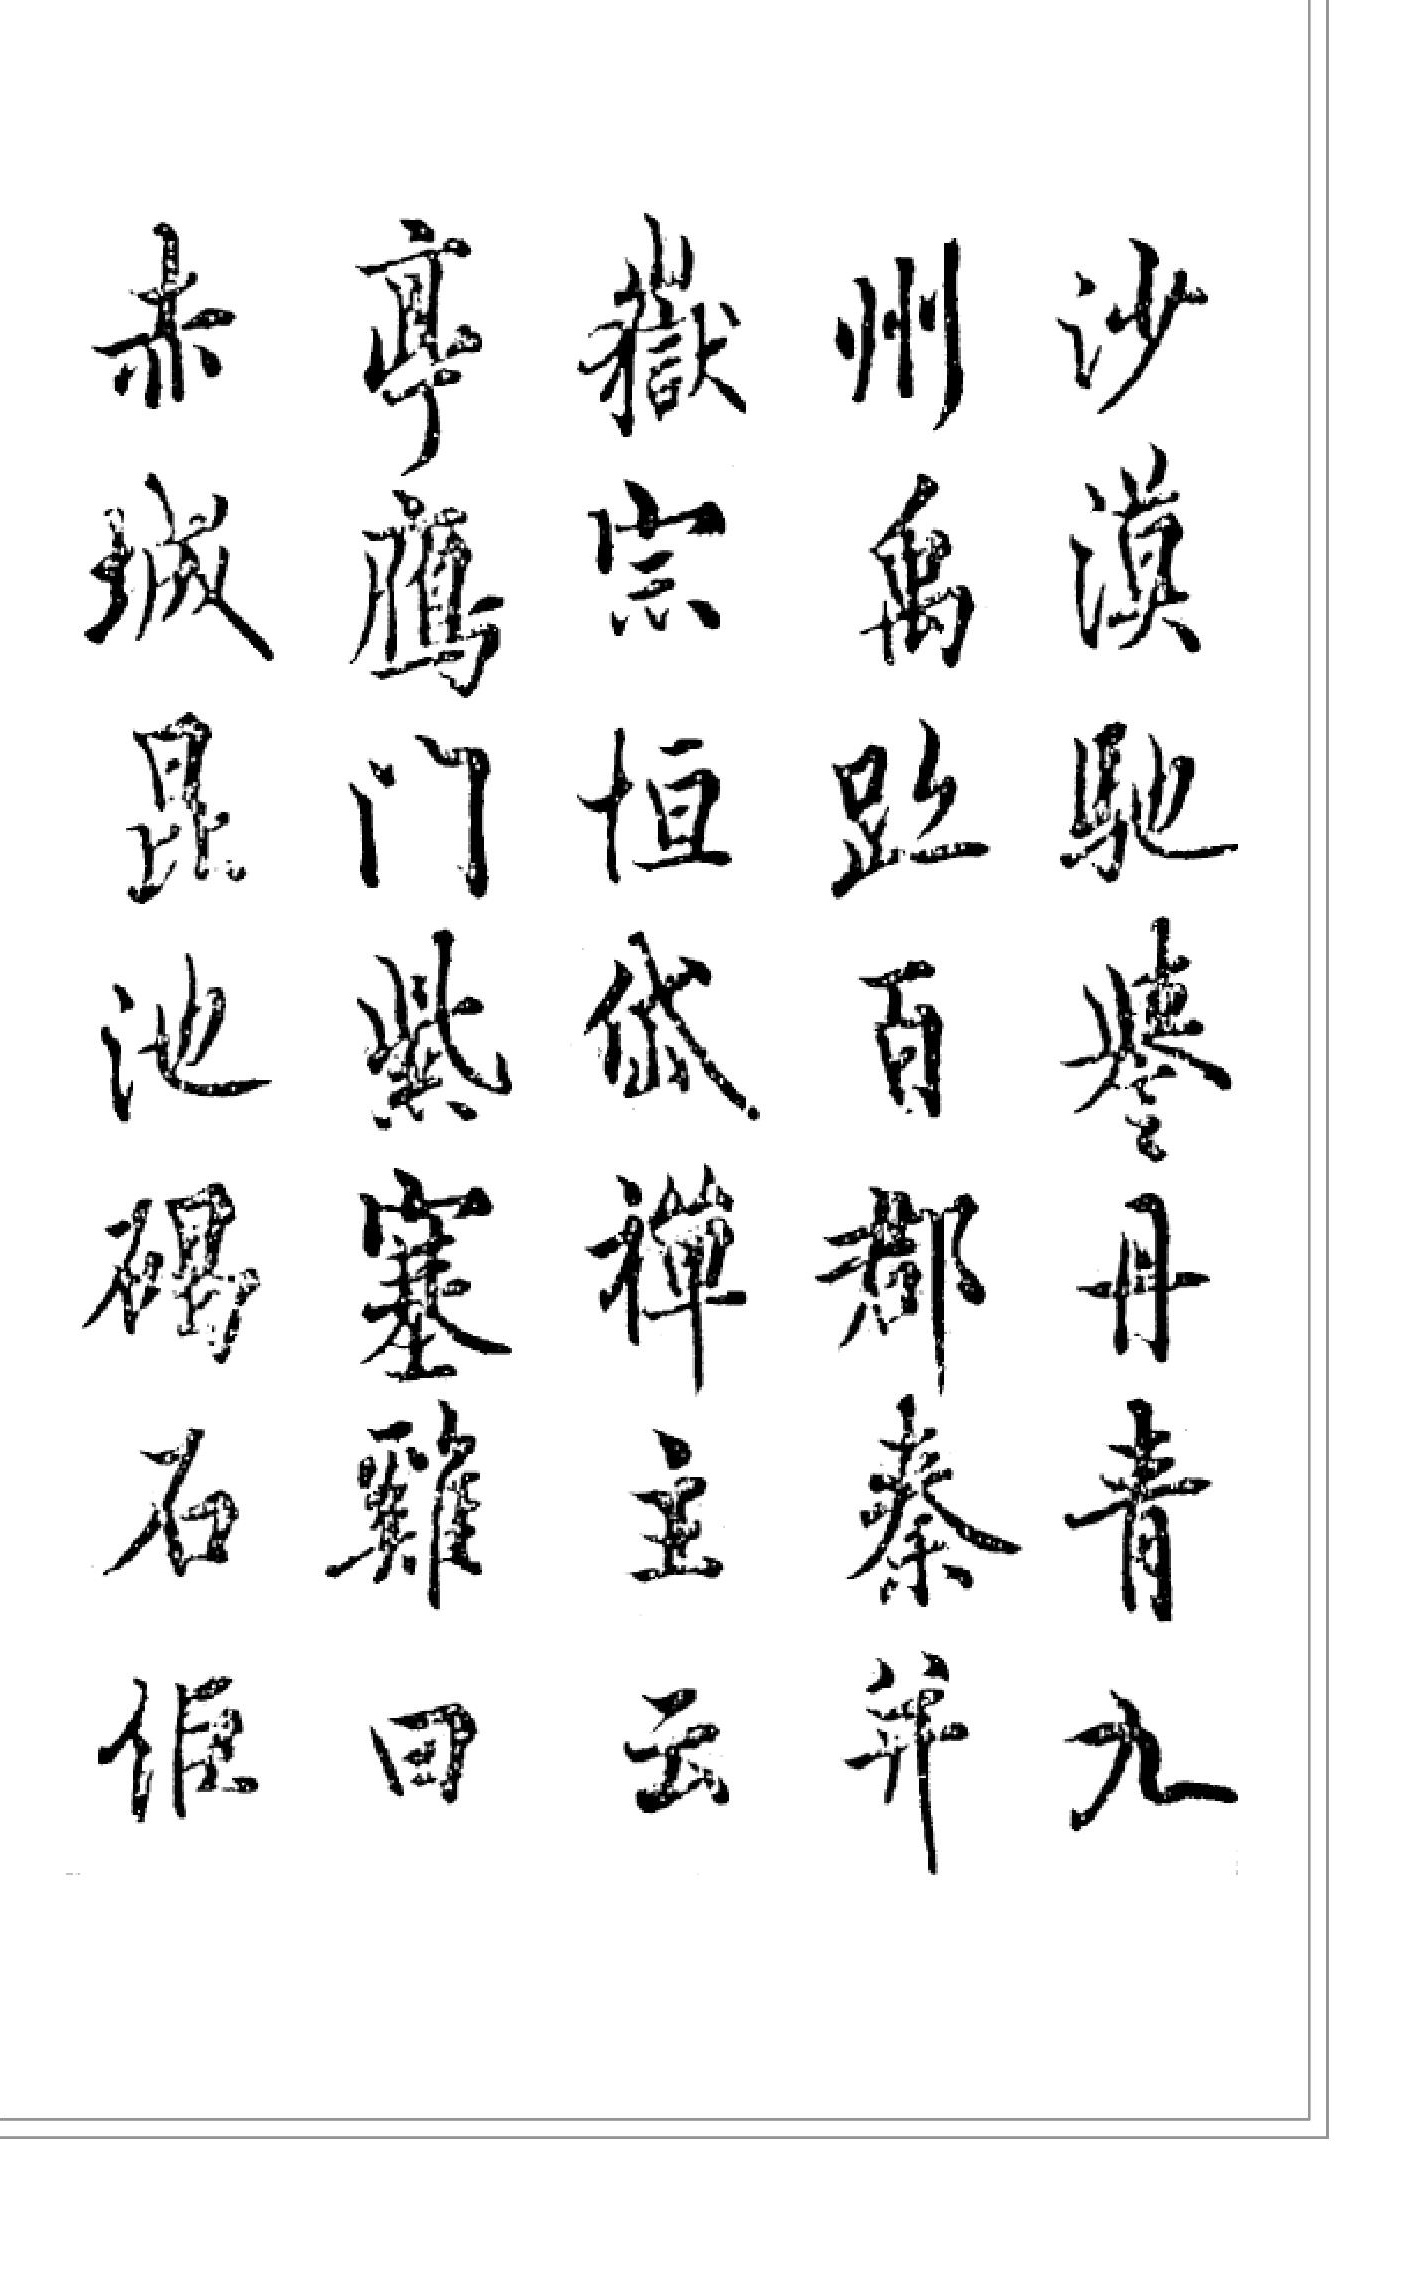 沙漠馳譽丹青九
州禹跡百郡秦并
嶽宗恒岱禪主云
亭鴈门紫塞雞田
赤城昆池碣石鉅